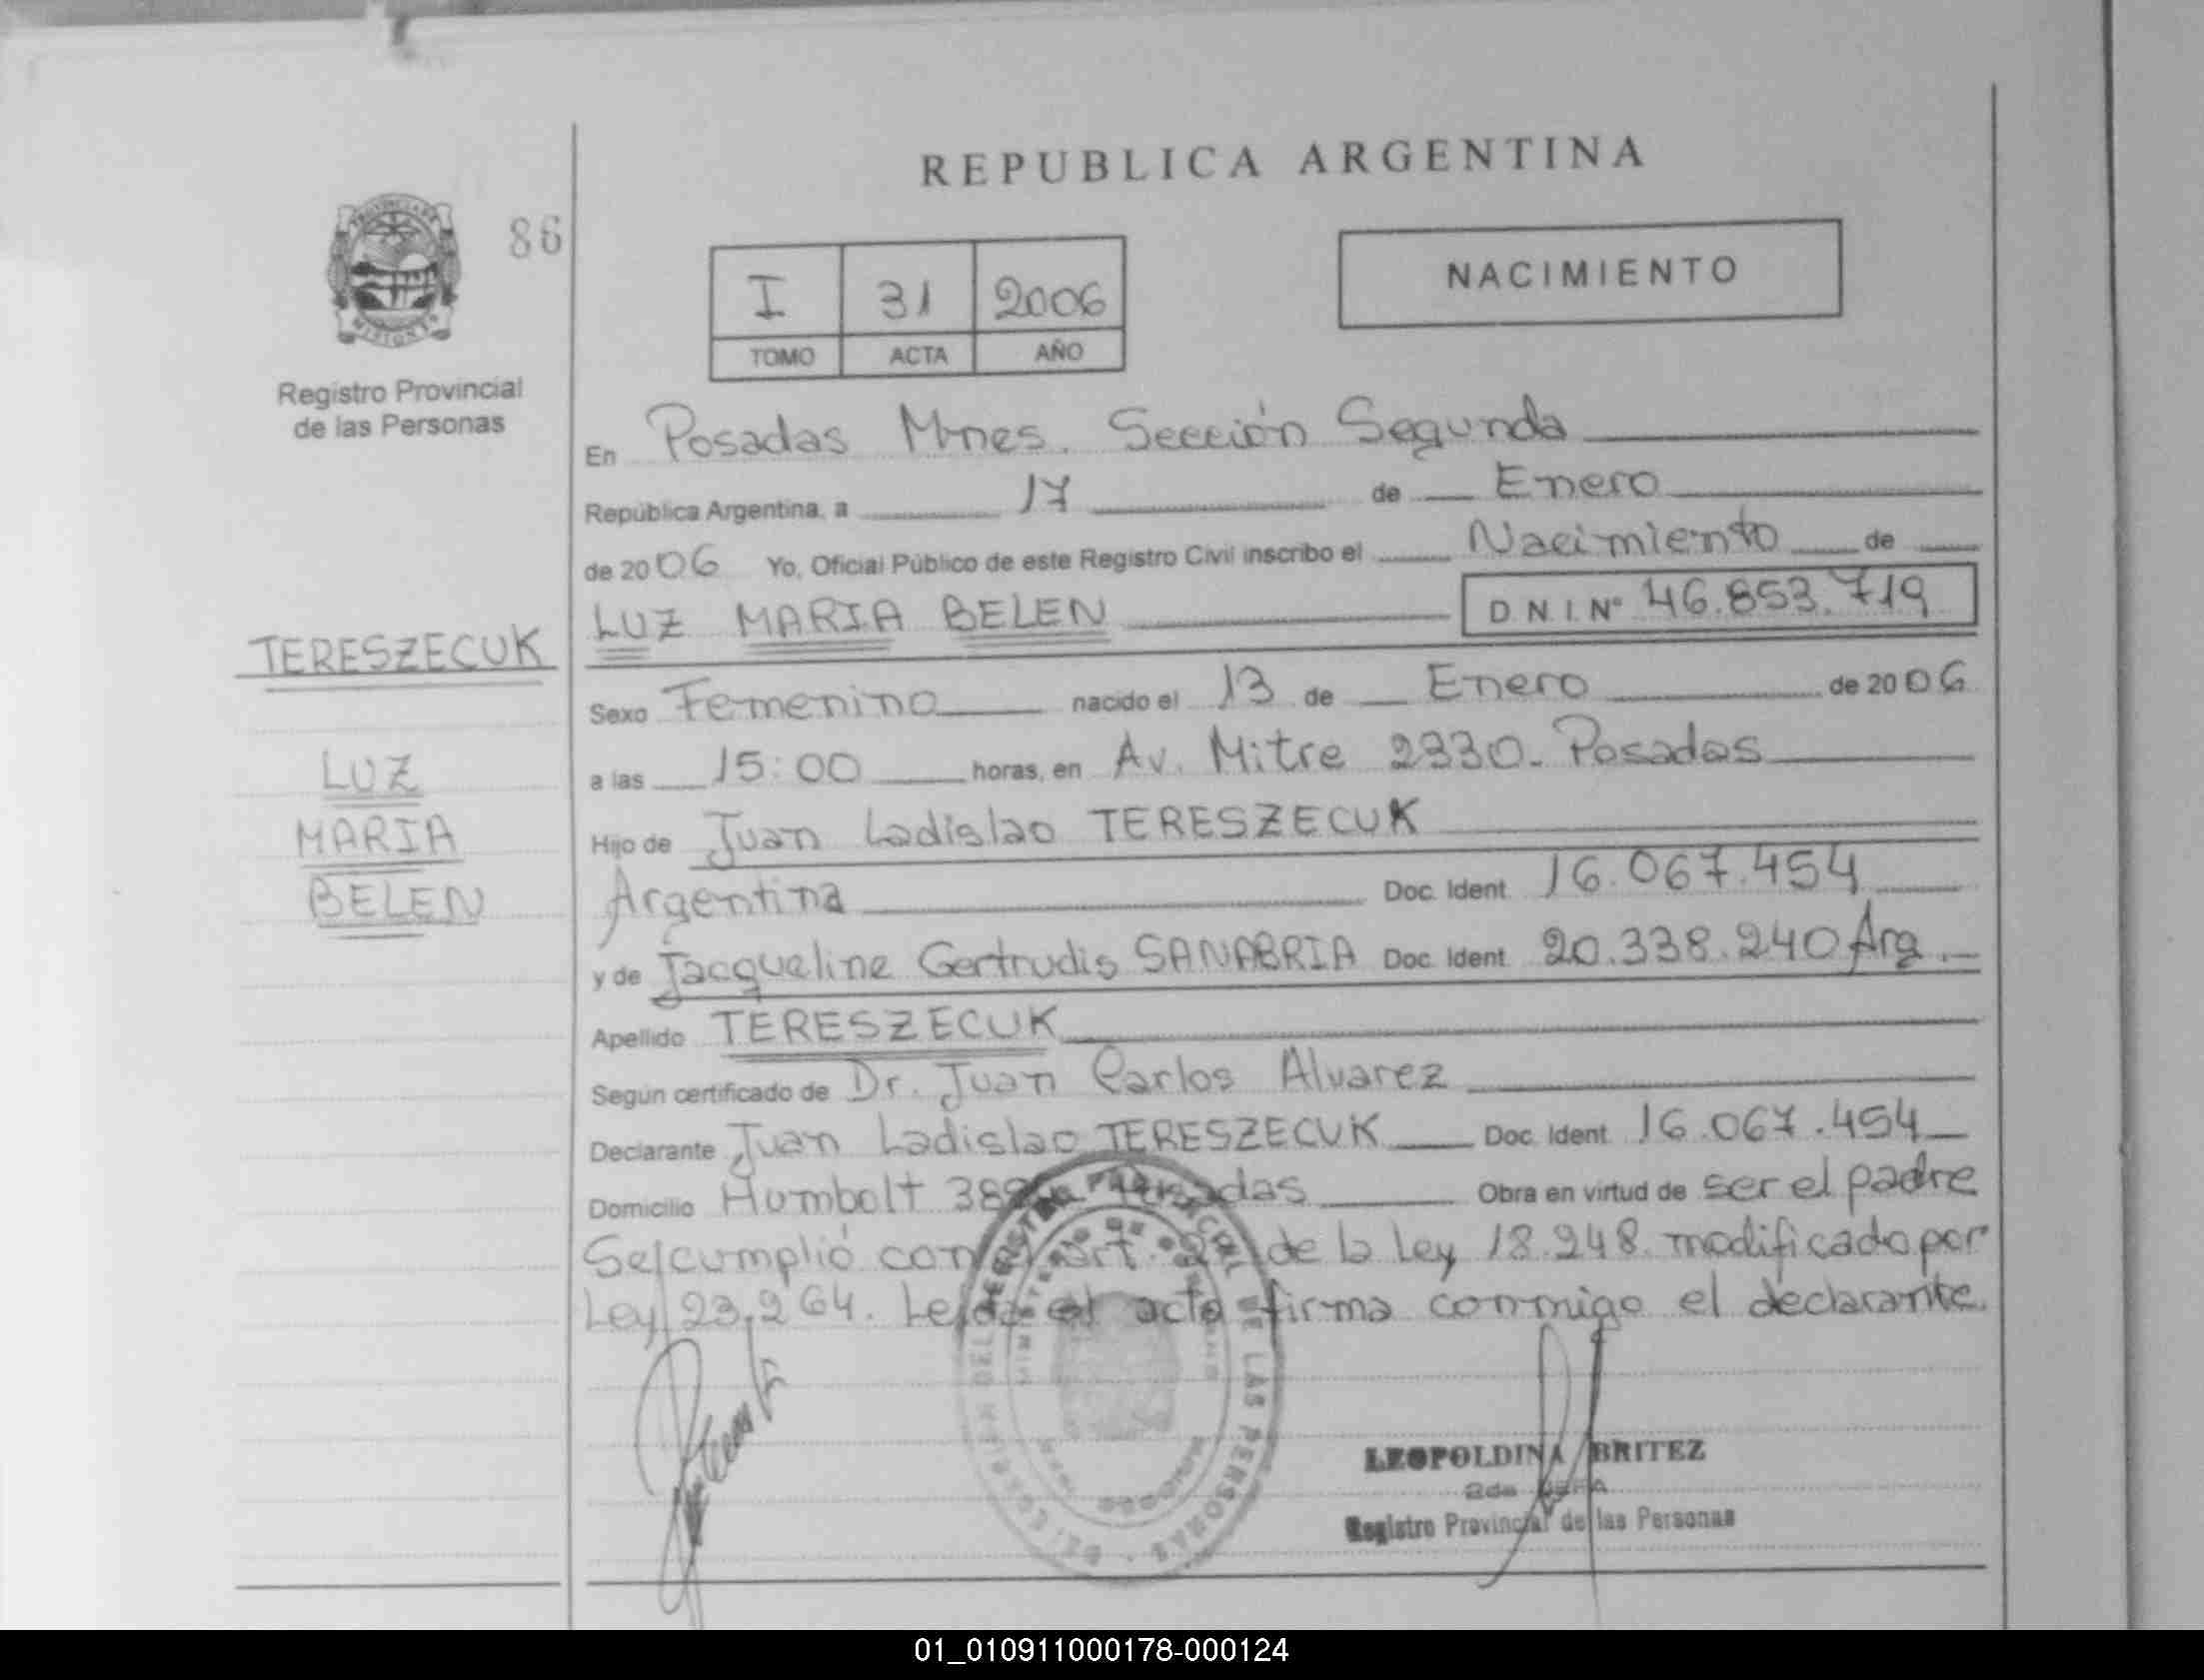 REPUBLICA ARGENTINA
PROVINCIA DE
MISIONES
86
Registro Provincial
de las Personas
I 31 2006
TOMO ACTA AÑO
NACIMIENTO
En Posadas Mnes. Sección Segunda
República Argentina, a 17 de Enero
de 2006 Yo, Oficial Público de este Registro Civil inscribo el Nacimiento de
LUZ MARIA BELEN D.N.I.Nº 46.853.719
TERESZECUK
LUZ
MARIA
BELEN
Sexo Femenino nacido el 13 de Enero de 2006
a las 15:00 horas, en Av. Mitre 2330. Posadas
Hijo de Juan Ladislao TERESZECUK
Argentina Doc. Ident. 16.067.454
y de Jacqueline Gertrudis SANABRIA Doc. Ident. 20.338.240 Arg.
Apellido TERESZECUK
Según certificado de Dr. Juan Carlos Alvarez
Declarante Juan Ladislao TERESZECUK Doc. Ident. 16.067.454
Domicilio Humbolt Posadas Obra en virtud de ser el padre
Se cumplió con art. de la Ley 18.248 modificado por
Ley 23.264. Leída el acta firma conmigo el declarante.
LEOPOLDINA BRITEZ
2da JEFA
Registro Provincial de las Personas
DE LAS PERSONAS
01_010911000178-000124